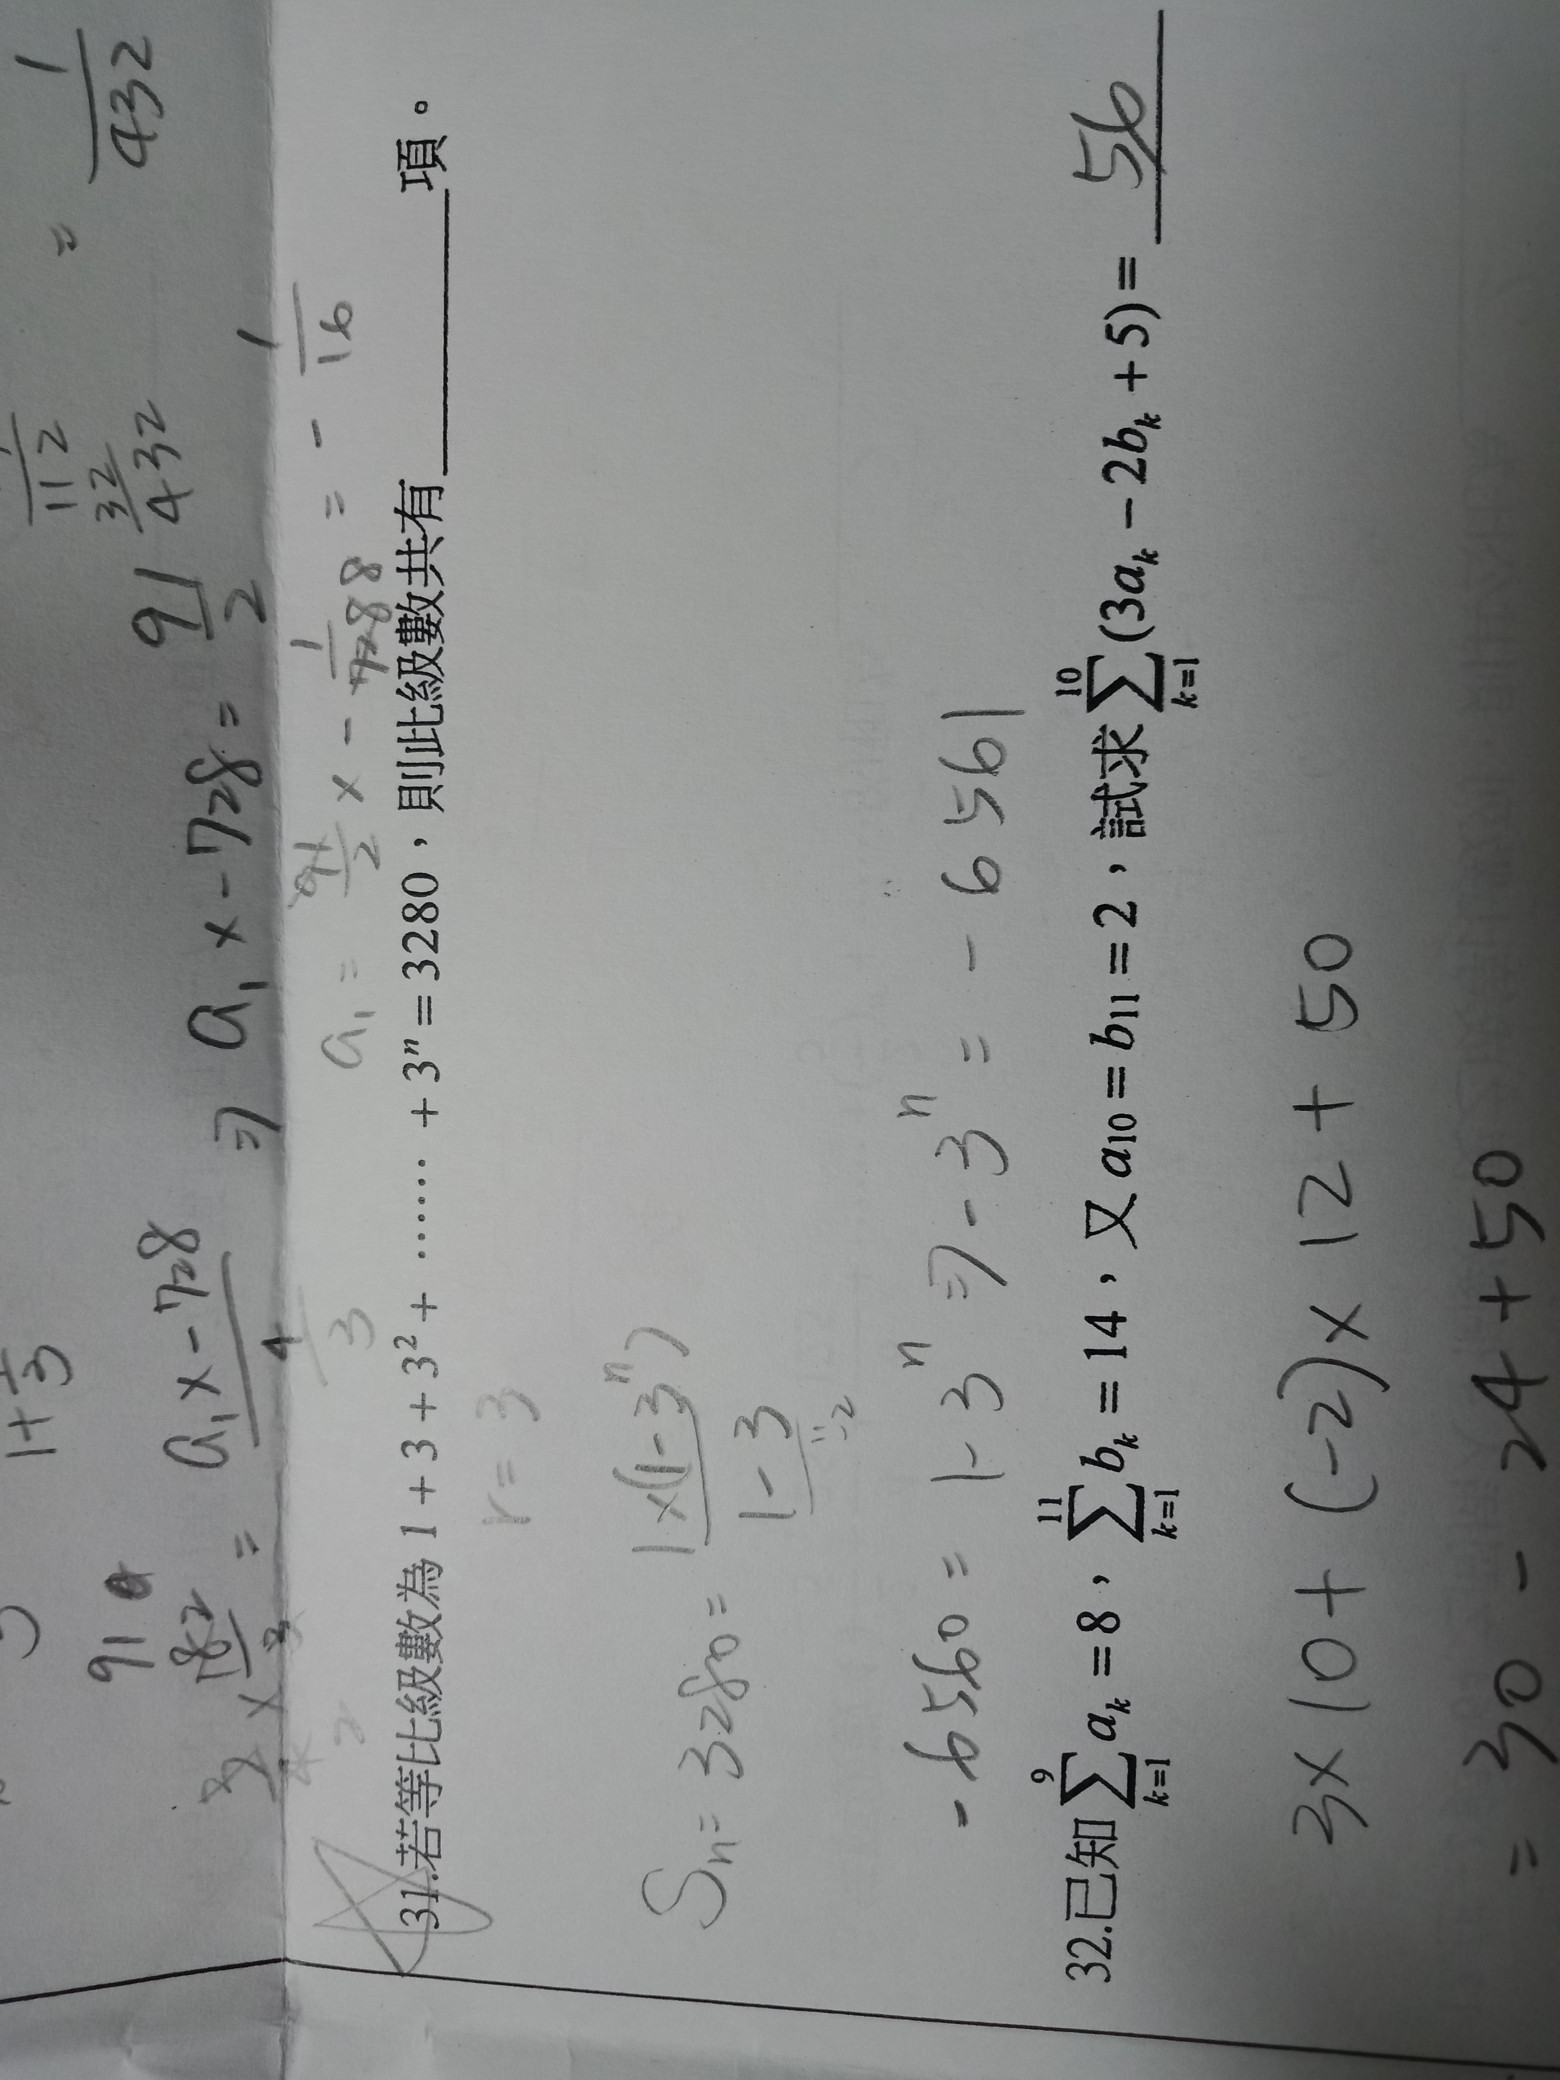 1
112
32
432
= 1/432
1+1/3
91
182/2 = a₁×-728/4 ⇒ a₁×-728 = 91/2
a₁ = 91/2 × -1/728 = -1/16
31.若等比級數為 1 + 3 + 3² + …… + 3ⁿ = 3280，則此級數共有______項。
r = 3
Sn = 3280 = 1×(1-3ⁿ)/1-3
-2
-6560 = 1-3ⁿ ⇒ -3ⁿ = -6561
32.已知 ∑(k=1→9) aₖ = 8，∑(k=1→11) bₖ = 14，又 a₁₀ = b₁₁ = 2，試求 ∑(k=1→10) (3aₖ − 2bₖ + 5) = 56
3×10+(-2)×12+50
= 30 - 24 + 50